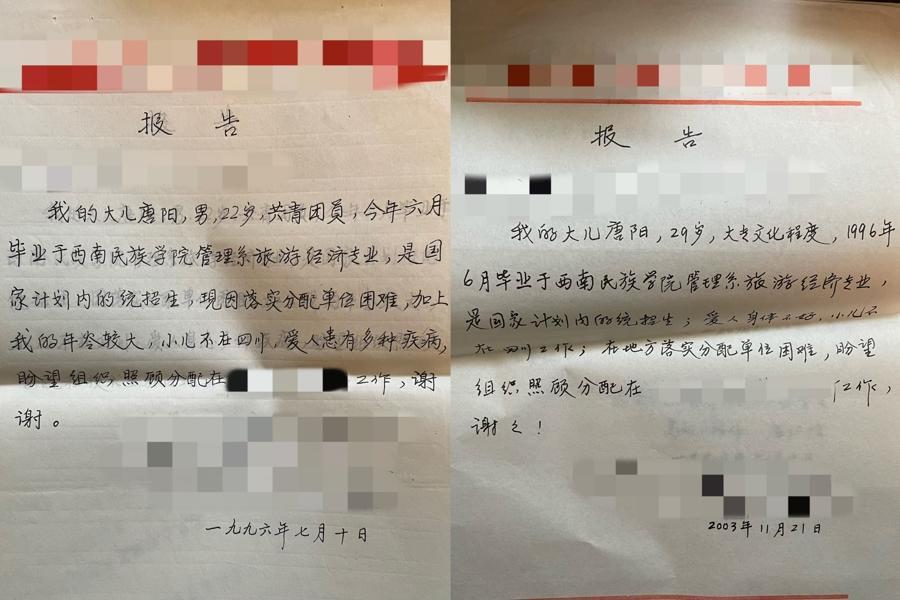 报 告
我的大儿唐阳，男，22岁，共青团员，今年六月
毕业于西南民族学院管理系旅游经济专业，是国
家计划内的统招生，现因落实分配单位困难，加上
我的年令较大，小儿不在四川，爱人患有多种疾病，
盼望组织照顾分配在 工作，谢
谢。
一九九六年七月十日
报 告
我的大儿唐阳，29岁，大专文化程度，1996年
6月毕业于西南民族学院管理系旅游经济专业，
是国家计划内的统招生；爱人身体不好，小儿不
在四川工作；在地方落实分配单位困难，盼望
组织照顾分配在 工作，
谢谢！
2003年11月21日